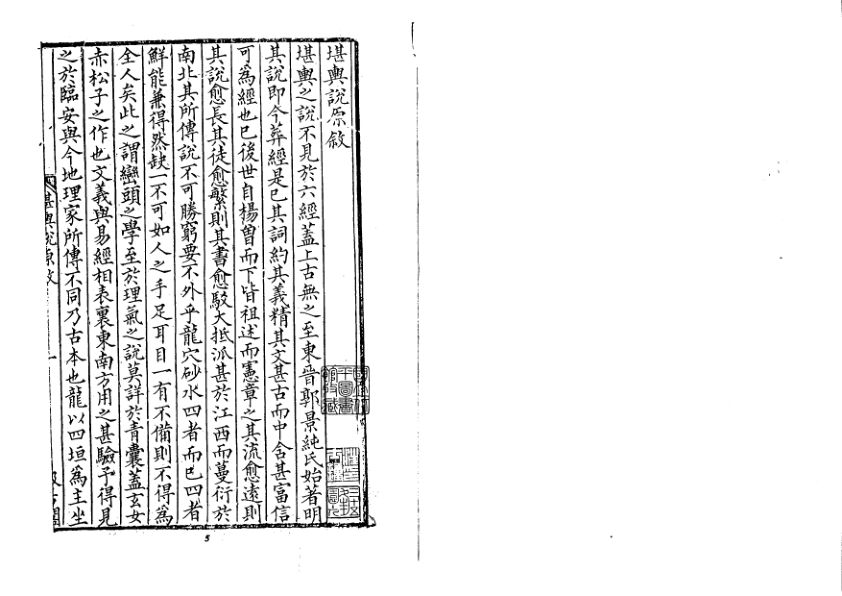 堪輿說原敘
堪輿之說不見於六經蓋上古無之至東晉郭景純氏始著明
其說即今葬經是已其詞約其義精其文甚古而中含甚富信
可為經也已後世自楊曾而下皆祖述而憲章之其流愈遠則
其說愈長其徒愈繁則其書愈駁大抵派甚於江西而蔓衍於
南北其所傳說不可勝窮要不外乎龍穴砂水四者而已四者
鮮能兼得然缺一不可如人之手足耳目一有不備則不得為
全人矣此之謂巒頭之學至於理氣之說莫詳於青囊蓋玄女
赤松子之作也文義與易經相表裏東南方用之甚驗予得見
之於臨安與今地理家所傳不同乃古本也龍以四垣為主坐
堪輿說原敘
一
汲古閣
5